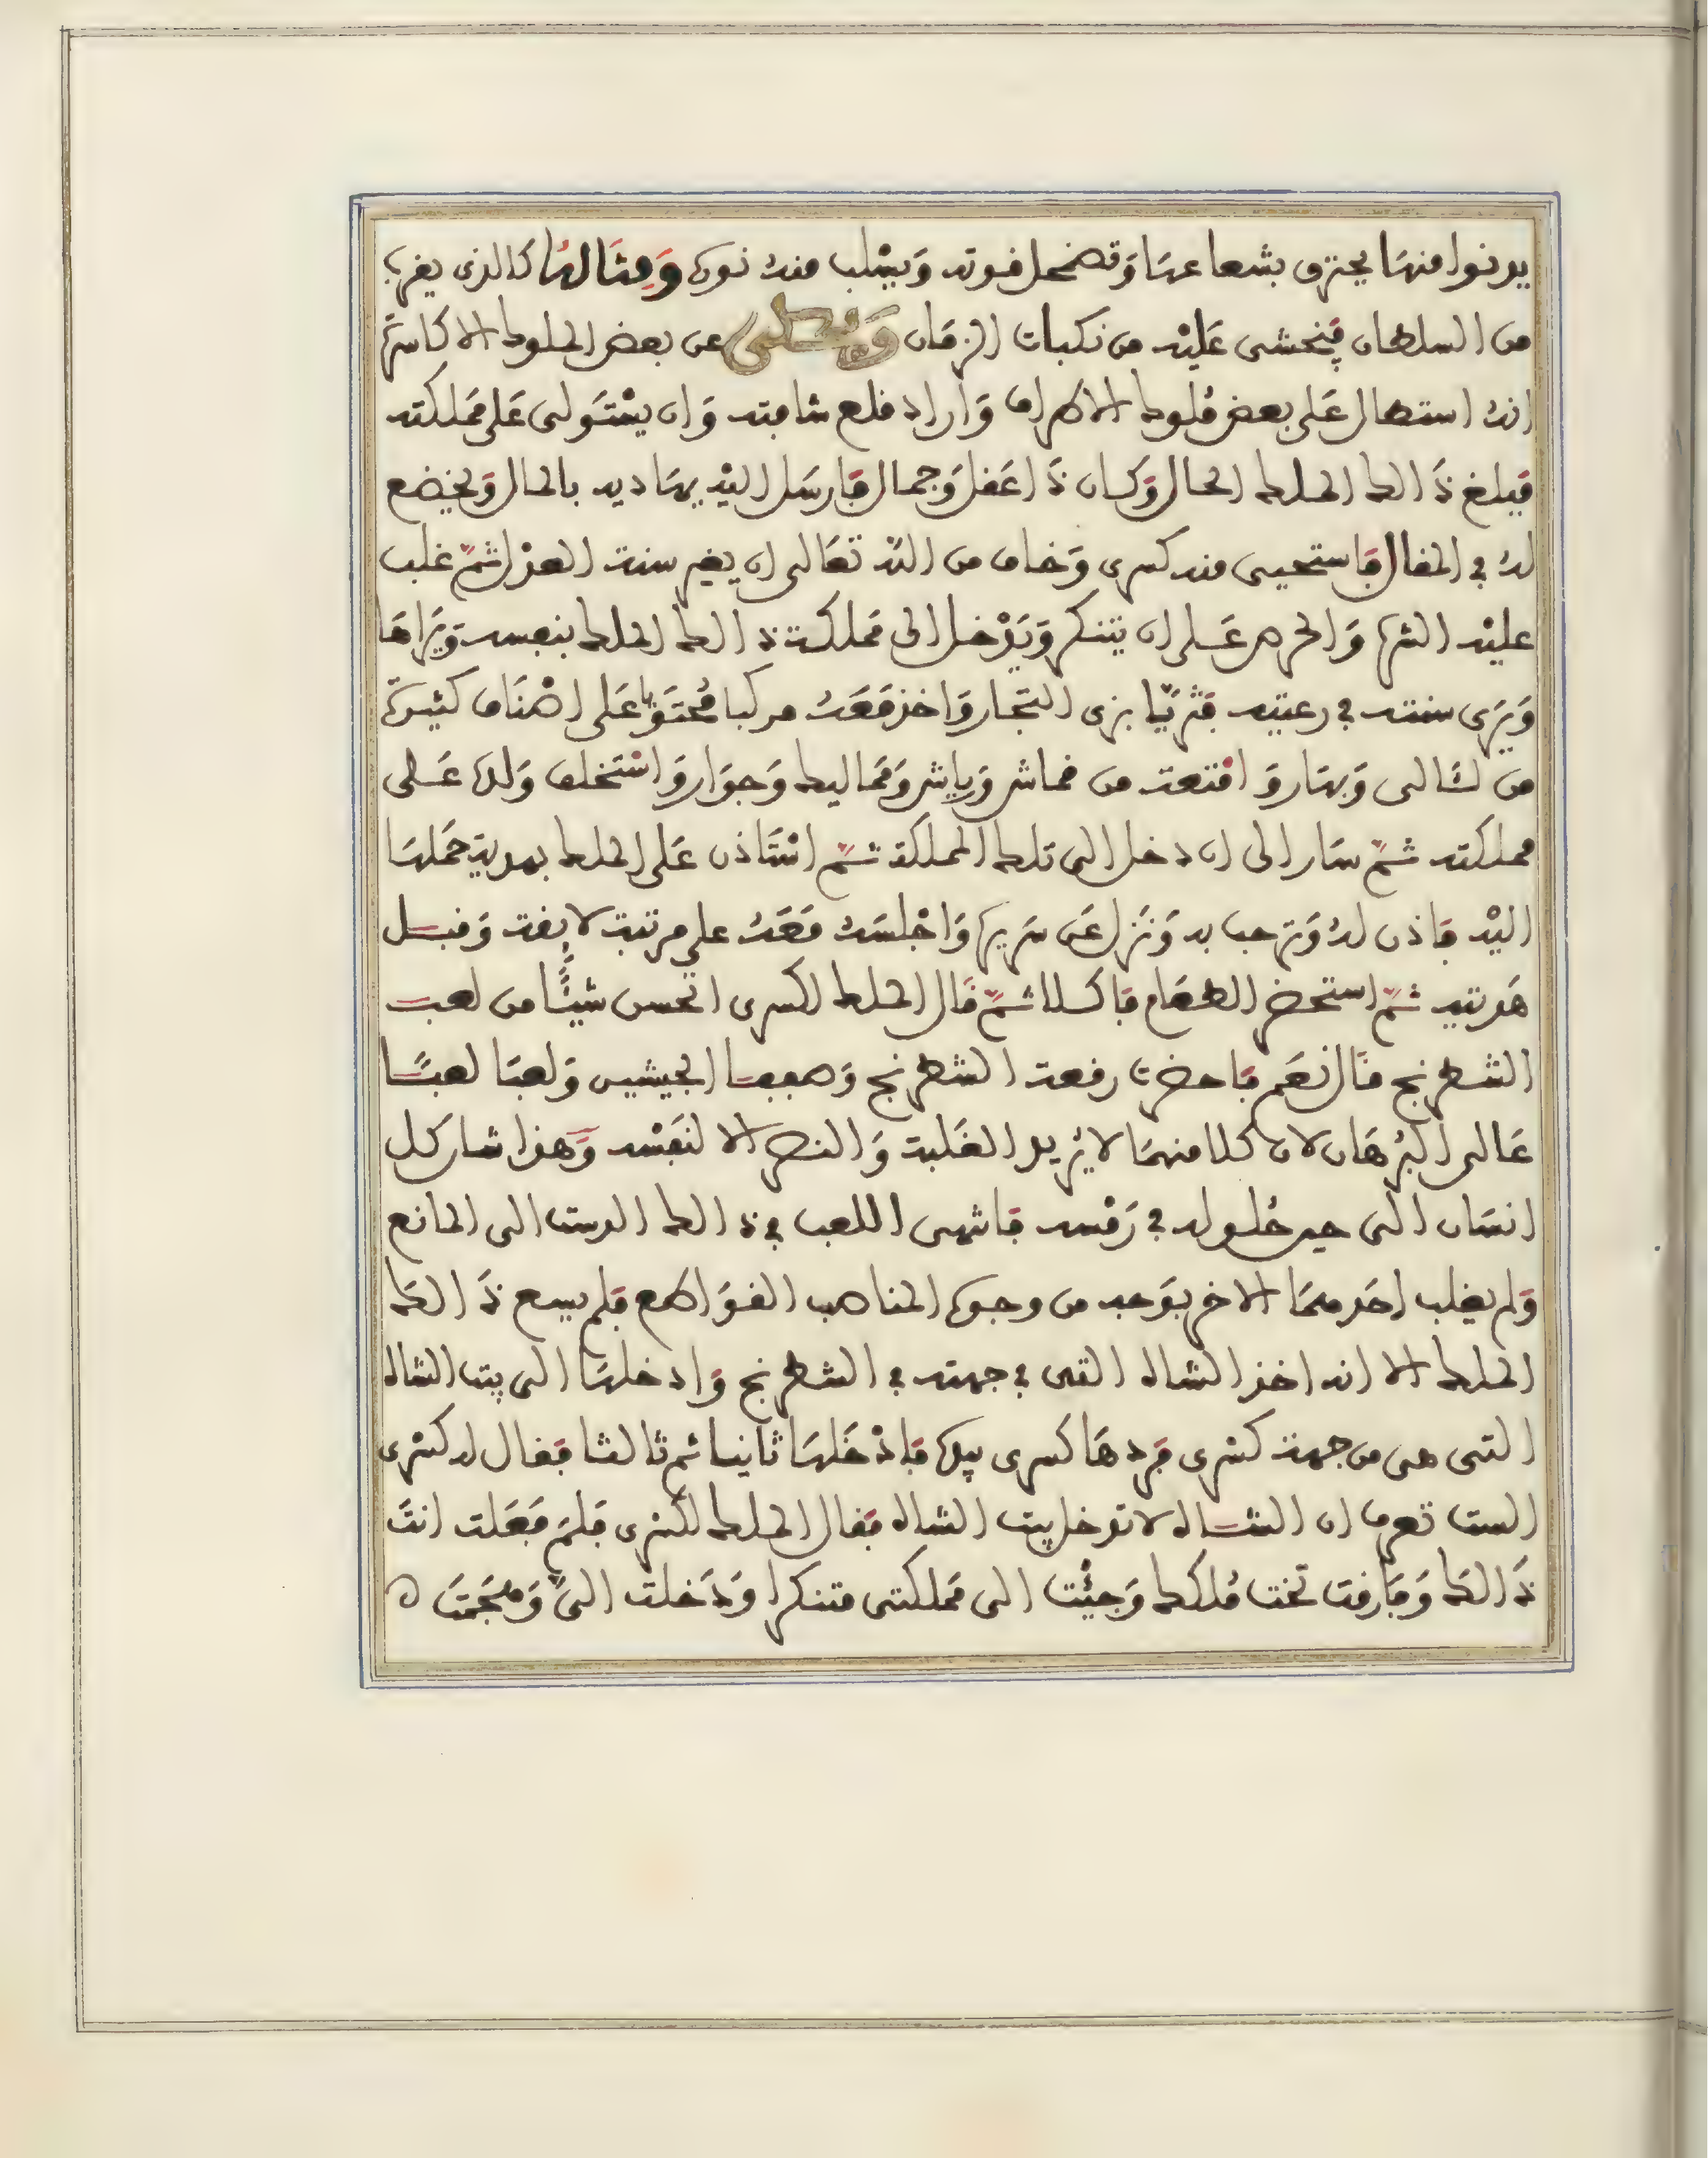 يدنوا منها يحترق بشعاعها وتضمحل قوته ويسلب منه نوره ومثالها كالذي يقرب
من السلطان فيخشى عليه من نكبات الزمان ويحكى عن بعض الملوك الاكاسرة
انه استطال على بعض ملوك الاطراف واراد قلع شافته وان يستولى على مملكته
فبلغ ذالك الملك الحال وكان ذا عقل وجمال فارسل اليه يهاديه بالمال ويخضع
له في المقال فاستحيى منه كسرى وخاف من الله تعالى ان يغير سنة العدل ثم غلب
عليه الشره والحرص على ان يتنكر ويدخل الى مملكة ذالك الملك بنفسه ويراها
ويرى سنته في رعيته فتزيا بزى التجار واخذ معه مركبا محتويا على اصناف كثيرة
من لئالى وبهار وامتعة من قماش ورياش ومماليك وجوار واستخلف ولده على
مملكته ثم سار الى ان دخل الى تلك المملكة ثم استاذن على الملك بهدية حملها
اليه فاذن له وترحب به ونزل عن سريره واجلسه معه على مرتبة لايقة وقبل
هديته ثم استحضر الطعام فاكلا ثم قال الملك لكسرى اتحسن شيئا من لعب
الشطرنج قال نعم فاحضرت رقعة الشطرنج وصففا الجيشين ولعبا لعبا
عالى البرهان لان كلا منهما لا يريد الغلبة والنصر الا لنفسه وهذا شان كل
انسان الى حين حلوله في رمسه فانتهى اللعب في ذالك الدست الى المانع
ولم يغلب احدهما الاخر بوجه من وجوه المناصب القواطع فلم يسع ذالك
الملك الا انه اخذ الشاه التى في جهته في الشطرنج وادخلها الى بيت الشاه
التى هى من جهة كسرى فردها كسرى بيده فادخلها ثانيا ثم ثالثا فقال له كسرى
الست تعرف ان الشاه لا تدخل بيت الشاه فقال الملك لكسرى فلم فعلت انت
ذالك وفارقت تخت ملكك وجئت الى مملكتى متنكرا ودخلت الى وهجمت ه